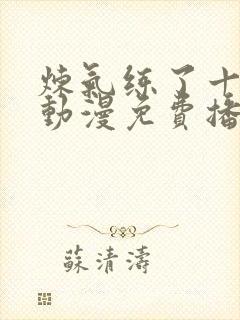 煉氣练了十
動漫免費播
蘇清濤